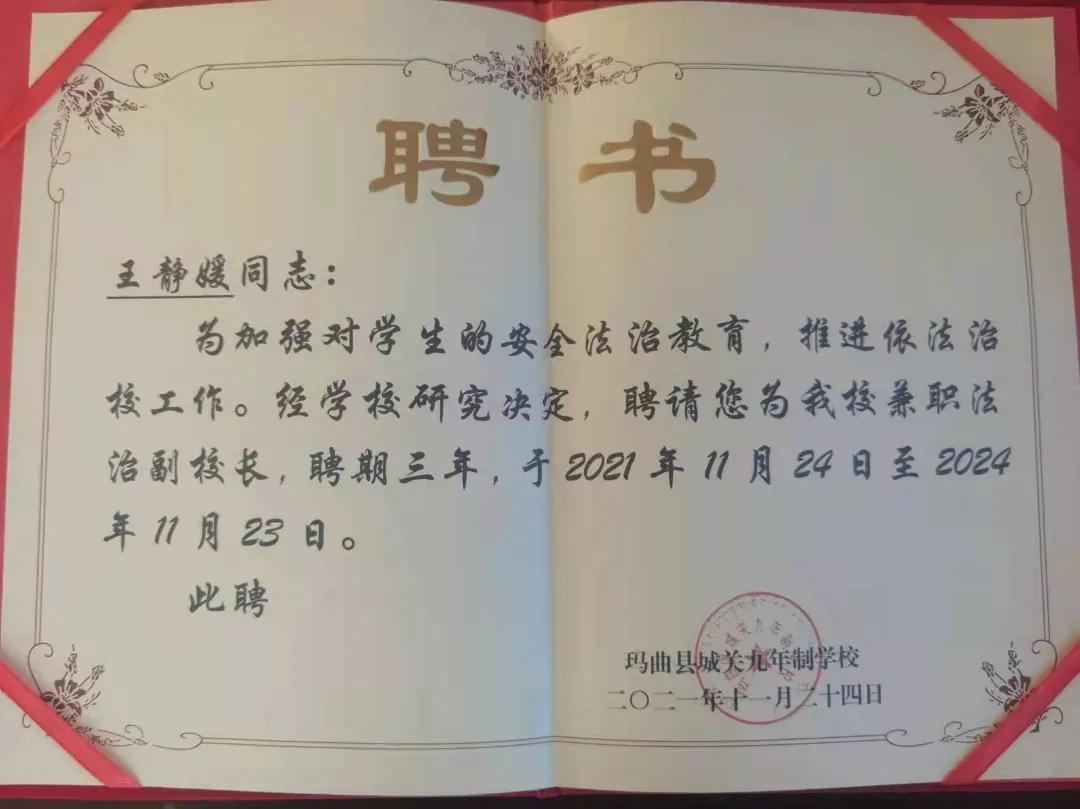 聘书
王静媛同志：
为加强对学生的安全法治教育，推进依法治
校工作。经学校研究决定，聘请您为我校兼职法
治副校长，聘期三年，于2021年11月24日至2024
年11月23日。
此聘
玛曲县城关九年制学校
二〇二一年十一月二十四日